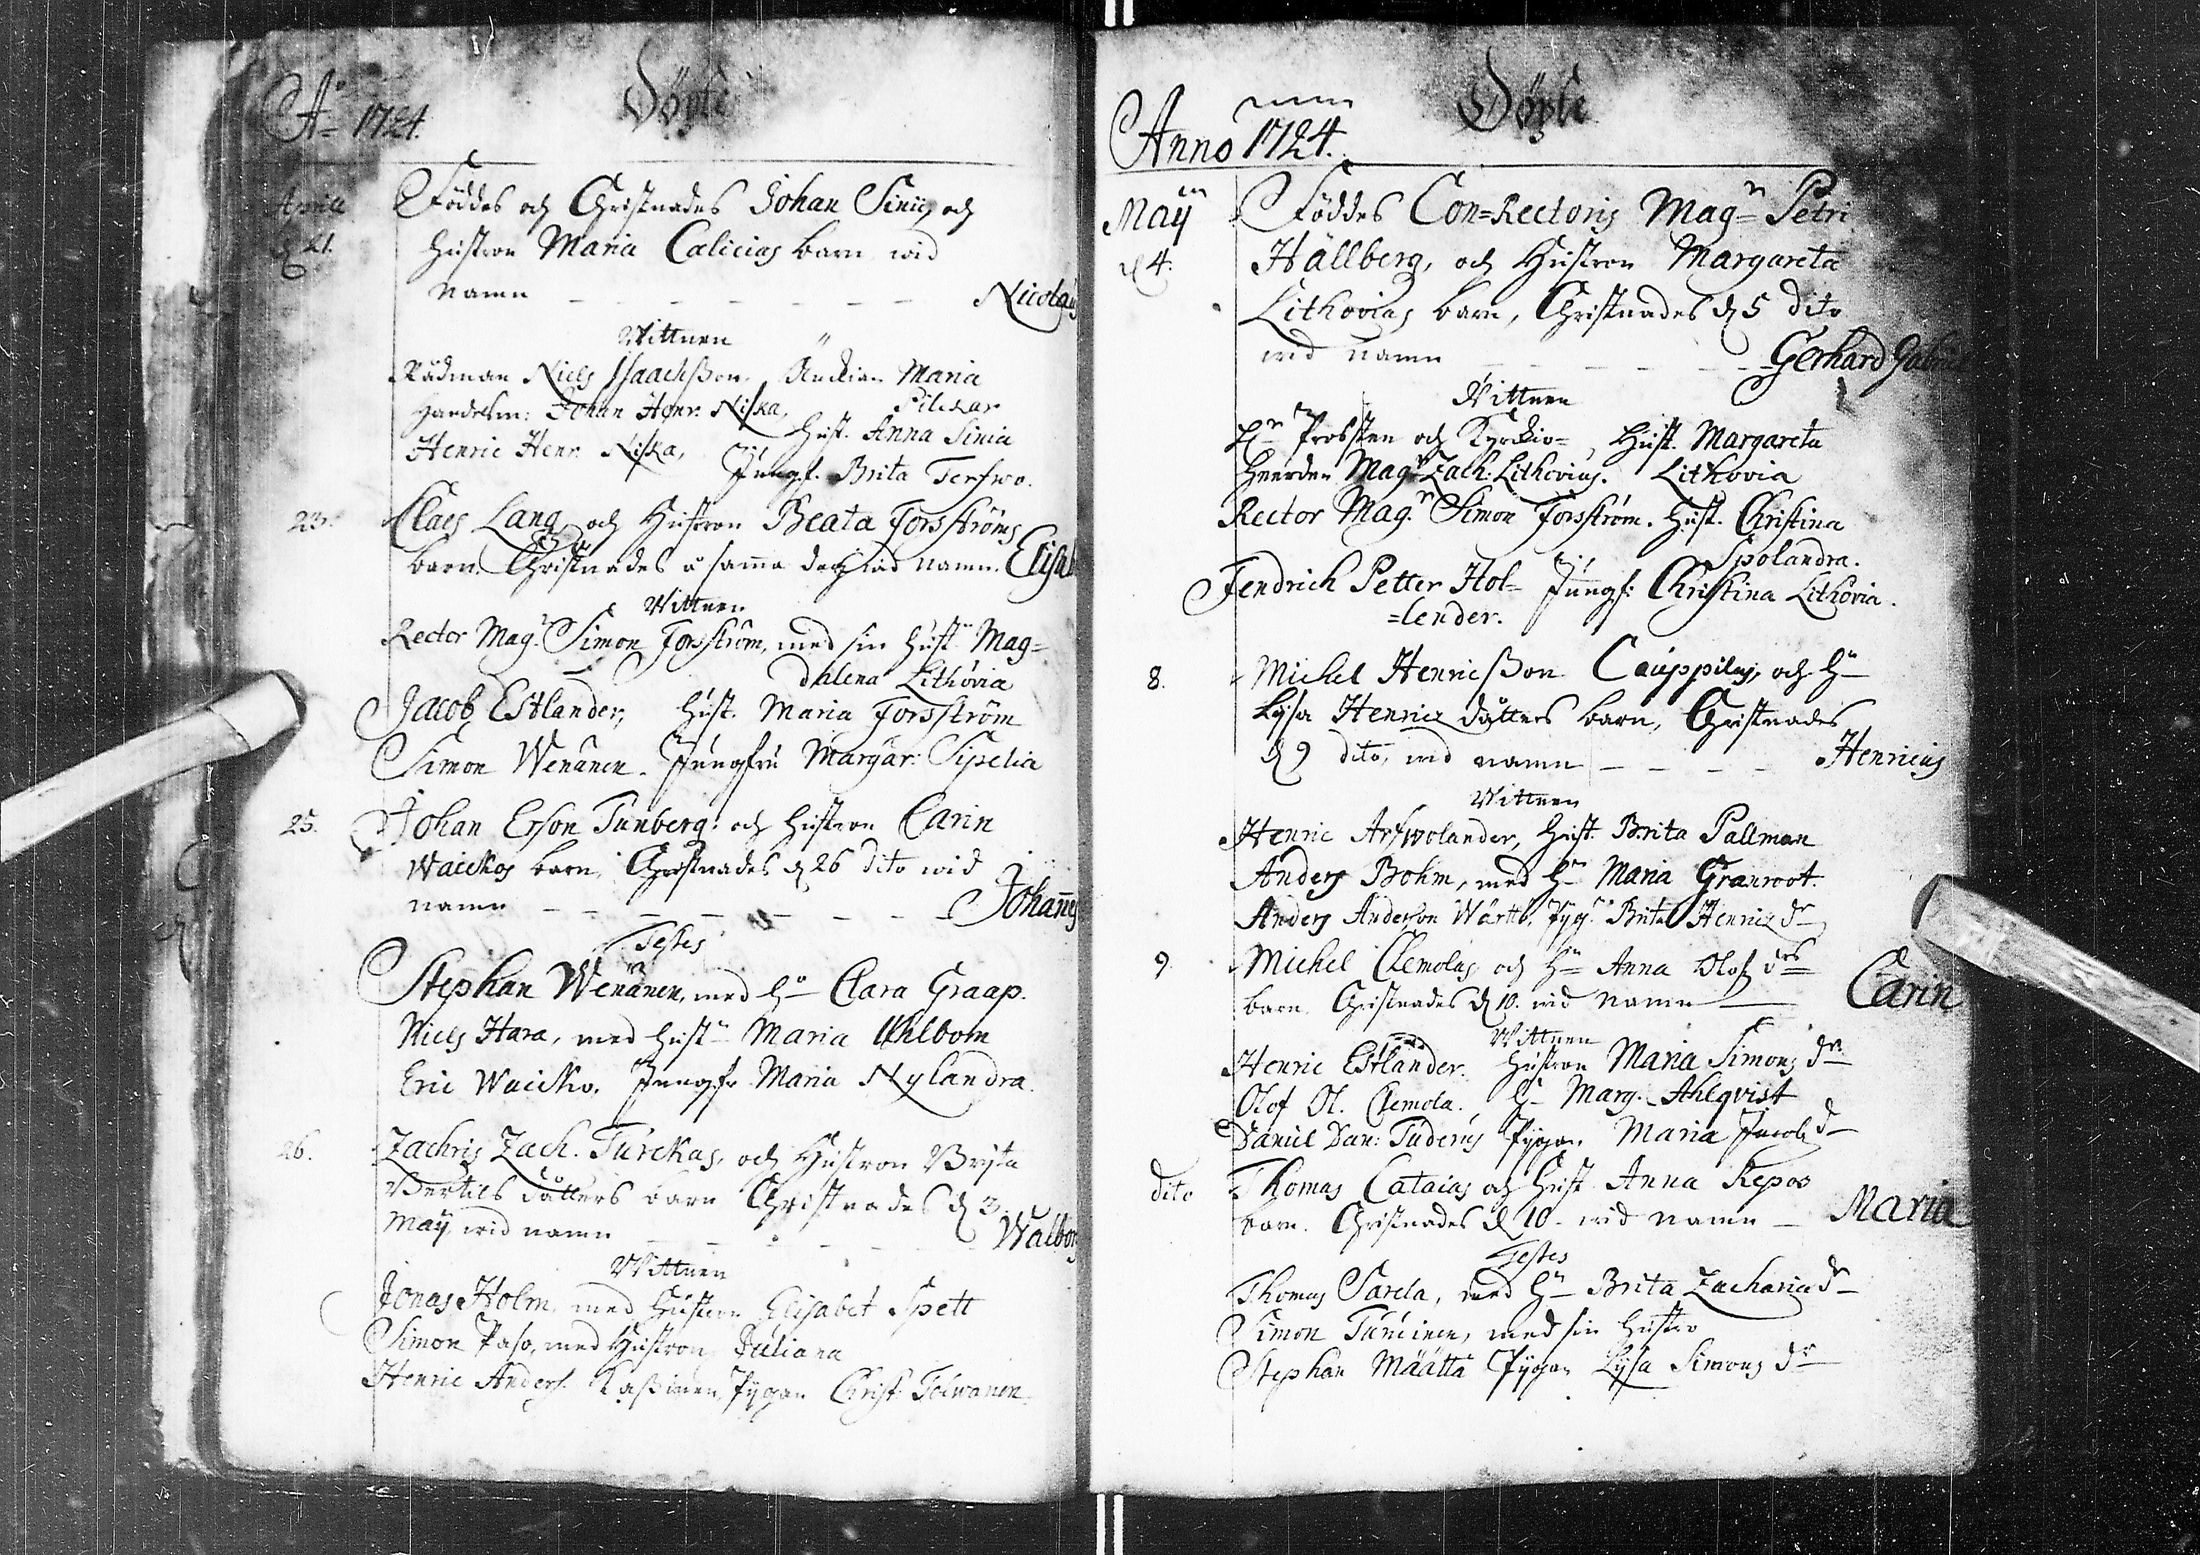 Aº 1724. Döpte
Aprill
d 21.
Föddes och Christnades Johan Sinius och
hustron Maria Calicias barn wid
namn - - - - - - - Nicolaus
Wittnen
Rådman Niels Isaachsson. Änckian Maria
Pilckar
Handelsm: Johan Henr. Niska,
Hust. Anna Sinia
Henric Henr. Niska, Jungf. Brita Terfwo.
23. Claes Lang och Hustron Beata Forsströms
barn. Christnades å samma dag wid namn. Elisab
Wittnen
Rector Magr. Simon Forsström, med sin Hust. Mag=
dalena Lithovia
Jacob Estlander, Hust. Maria Forsström
Simon Wenänen. Jungfru Margar: Sipelia
25. Johan Erson Tunberg. och hustron Carin
Waickos barn, Christnades d 26 dito wid
namn - - - - - - - Johannes
Testes
Stephan Wenänen, med Hn Clara Graap.
Niels Hara, med Hustn Maria Uhlbom
Eric Waicko, Jungfr Maria Nylandra.
26. Zachris Zach. Turckas, och Hustron Bryta
Bertils dåtters barn Christnades d 3
Maÿ, wid namn - - - - - Walbor
Wittnen
Jonas Holm, med Hustron Elisabet Spett
Simon Paso, med Hustron Juliana
Henric Anders. Kassinen, Pygan Christ: Tolwanen.
Anno 1724. Döpte
Maÿ
d 4.
Föddes Con=Rectoris Magn Petri
Hällberg, och Hustron Margareta
Lithovias barn, Christnades d 5 dito
wid namn - - - - - - Gerhard Gabriel
Wittnen
Hr Probsten och Kyrckio= Hust. Margareta
heerden Magr Zach: Lithovius. Lithovia
Rector Magn. Simon Forsström. Hust. Christina
Spolandra.
Fendrich Petter Hol= Jungf: Christina Lithovia.
=lender.
8. Michel Henricsson Cauppilas, och Hn
Lysa Henrics dåtters barn, Christnades
d 9 dito, wid namn - - - - Henricus
Wittnen
Henric Arfwolander, Hust. Brita Pallman
Anders Bohm, med Hn Maria Granroot.
Anders Anderson Wärtt. Pyg. Brita Henrics dr
9. Michel Clemolas och Hn Anna Olofs drs
barn. Christnades d 10. wid namn Carin
Wittnen
Henric Estlander. Hustron Maria Simons dr
Olof Ol. Clemola. H Marg. Ahlqvist
Daniel Dan: Tuderus Pygan Maria Jacobs dr
dito Thomas Cataias och Hust. Anna Repos
barn. Christnades d 10 - wid namn - Maria
Testes
Thomas Sarela, med Hn Brita Zacharias dr
Simon Tureinen, med sin hustro
Stephan Määttä Pygan Lysa Simons dr